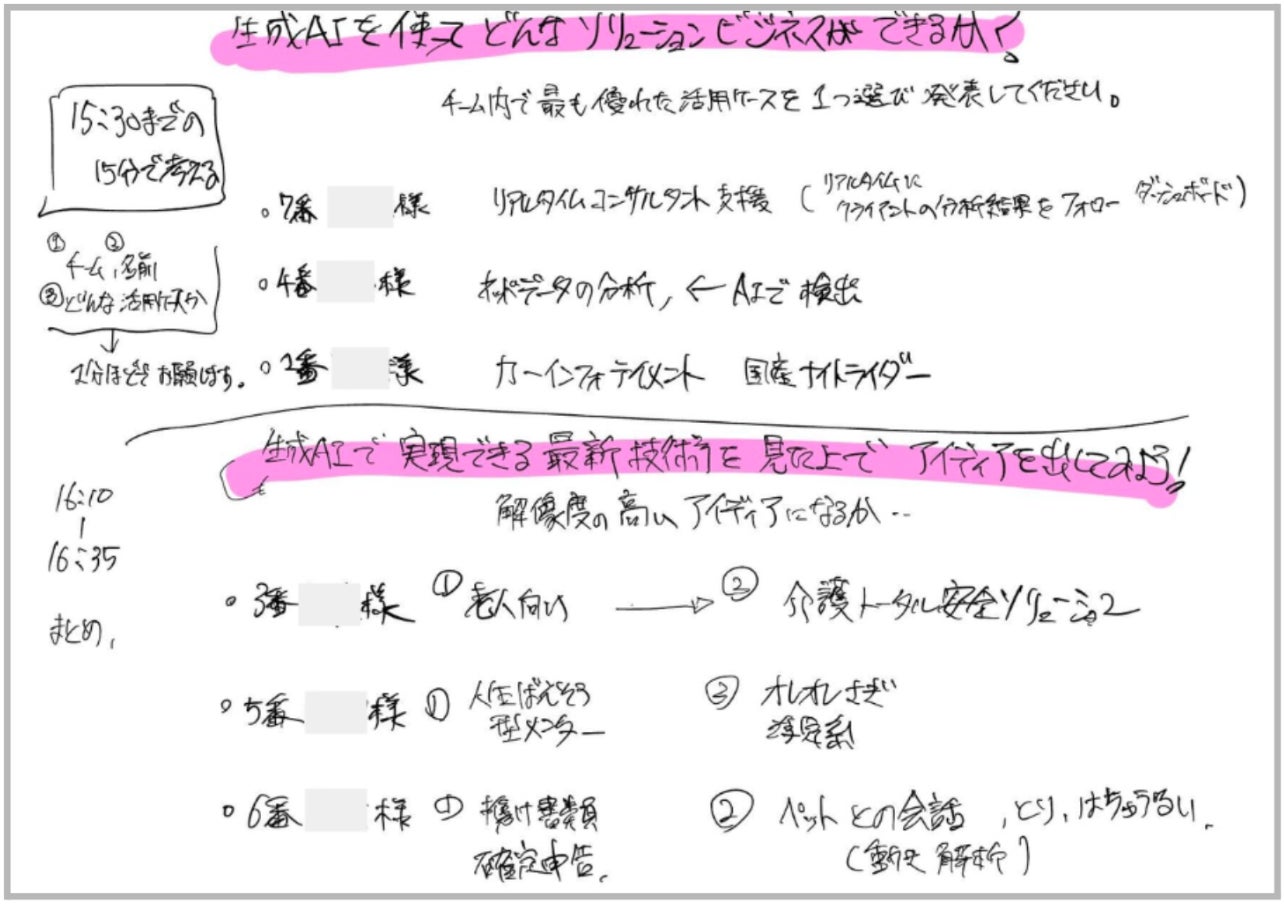 生成AIを使って どんなソリューションビジネスができるか?
チーム内で最も優れた活用ケースを1つ選び発表してください。
15:30までの
15分で考える
① ②
チーム、名前
③どんな活用ケースか
↓
1分ほどで お願いします。
○7番 様 リアルタイムコンサルタント支援 (リアルタイムに クライアントの分析結果をフォロー ダッシュボード)
○4番 様 データの分析, ← AIで検出
○2番 様 カーインフォテイメント 国産ナイトライダー
生成AIで実現できる最新技術を見た上で アイディアを出してみよう!
解像度の高いアイディアになるか‥
16:10
|
16:35
まとめ,
○3番 様 ①老人向け → ② 介護トータル安全ソリューション
○5番 様 ① 人生ばんそう
型メンター
② オレオレさぎ
○6番 様 ①
確定申告。
② ペットとの会話 ,とり,はちゅうるい,
(動き解析)